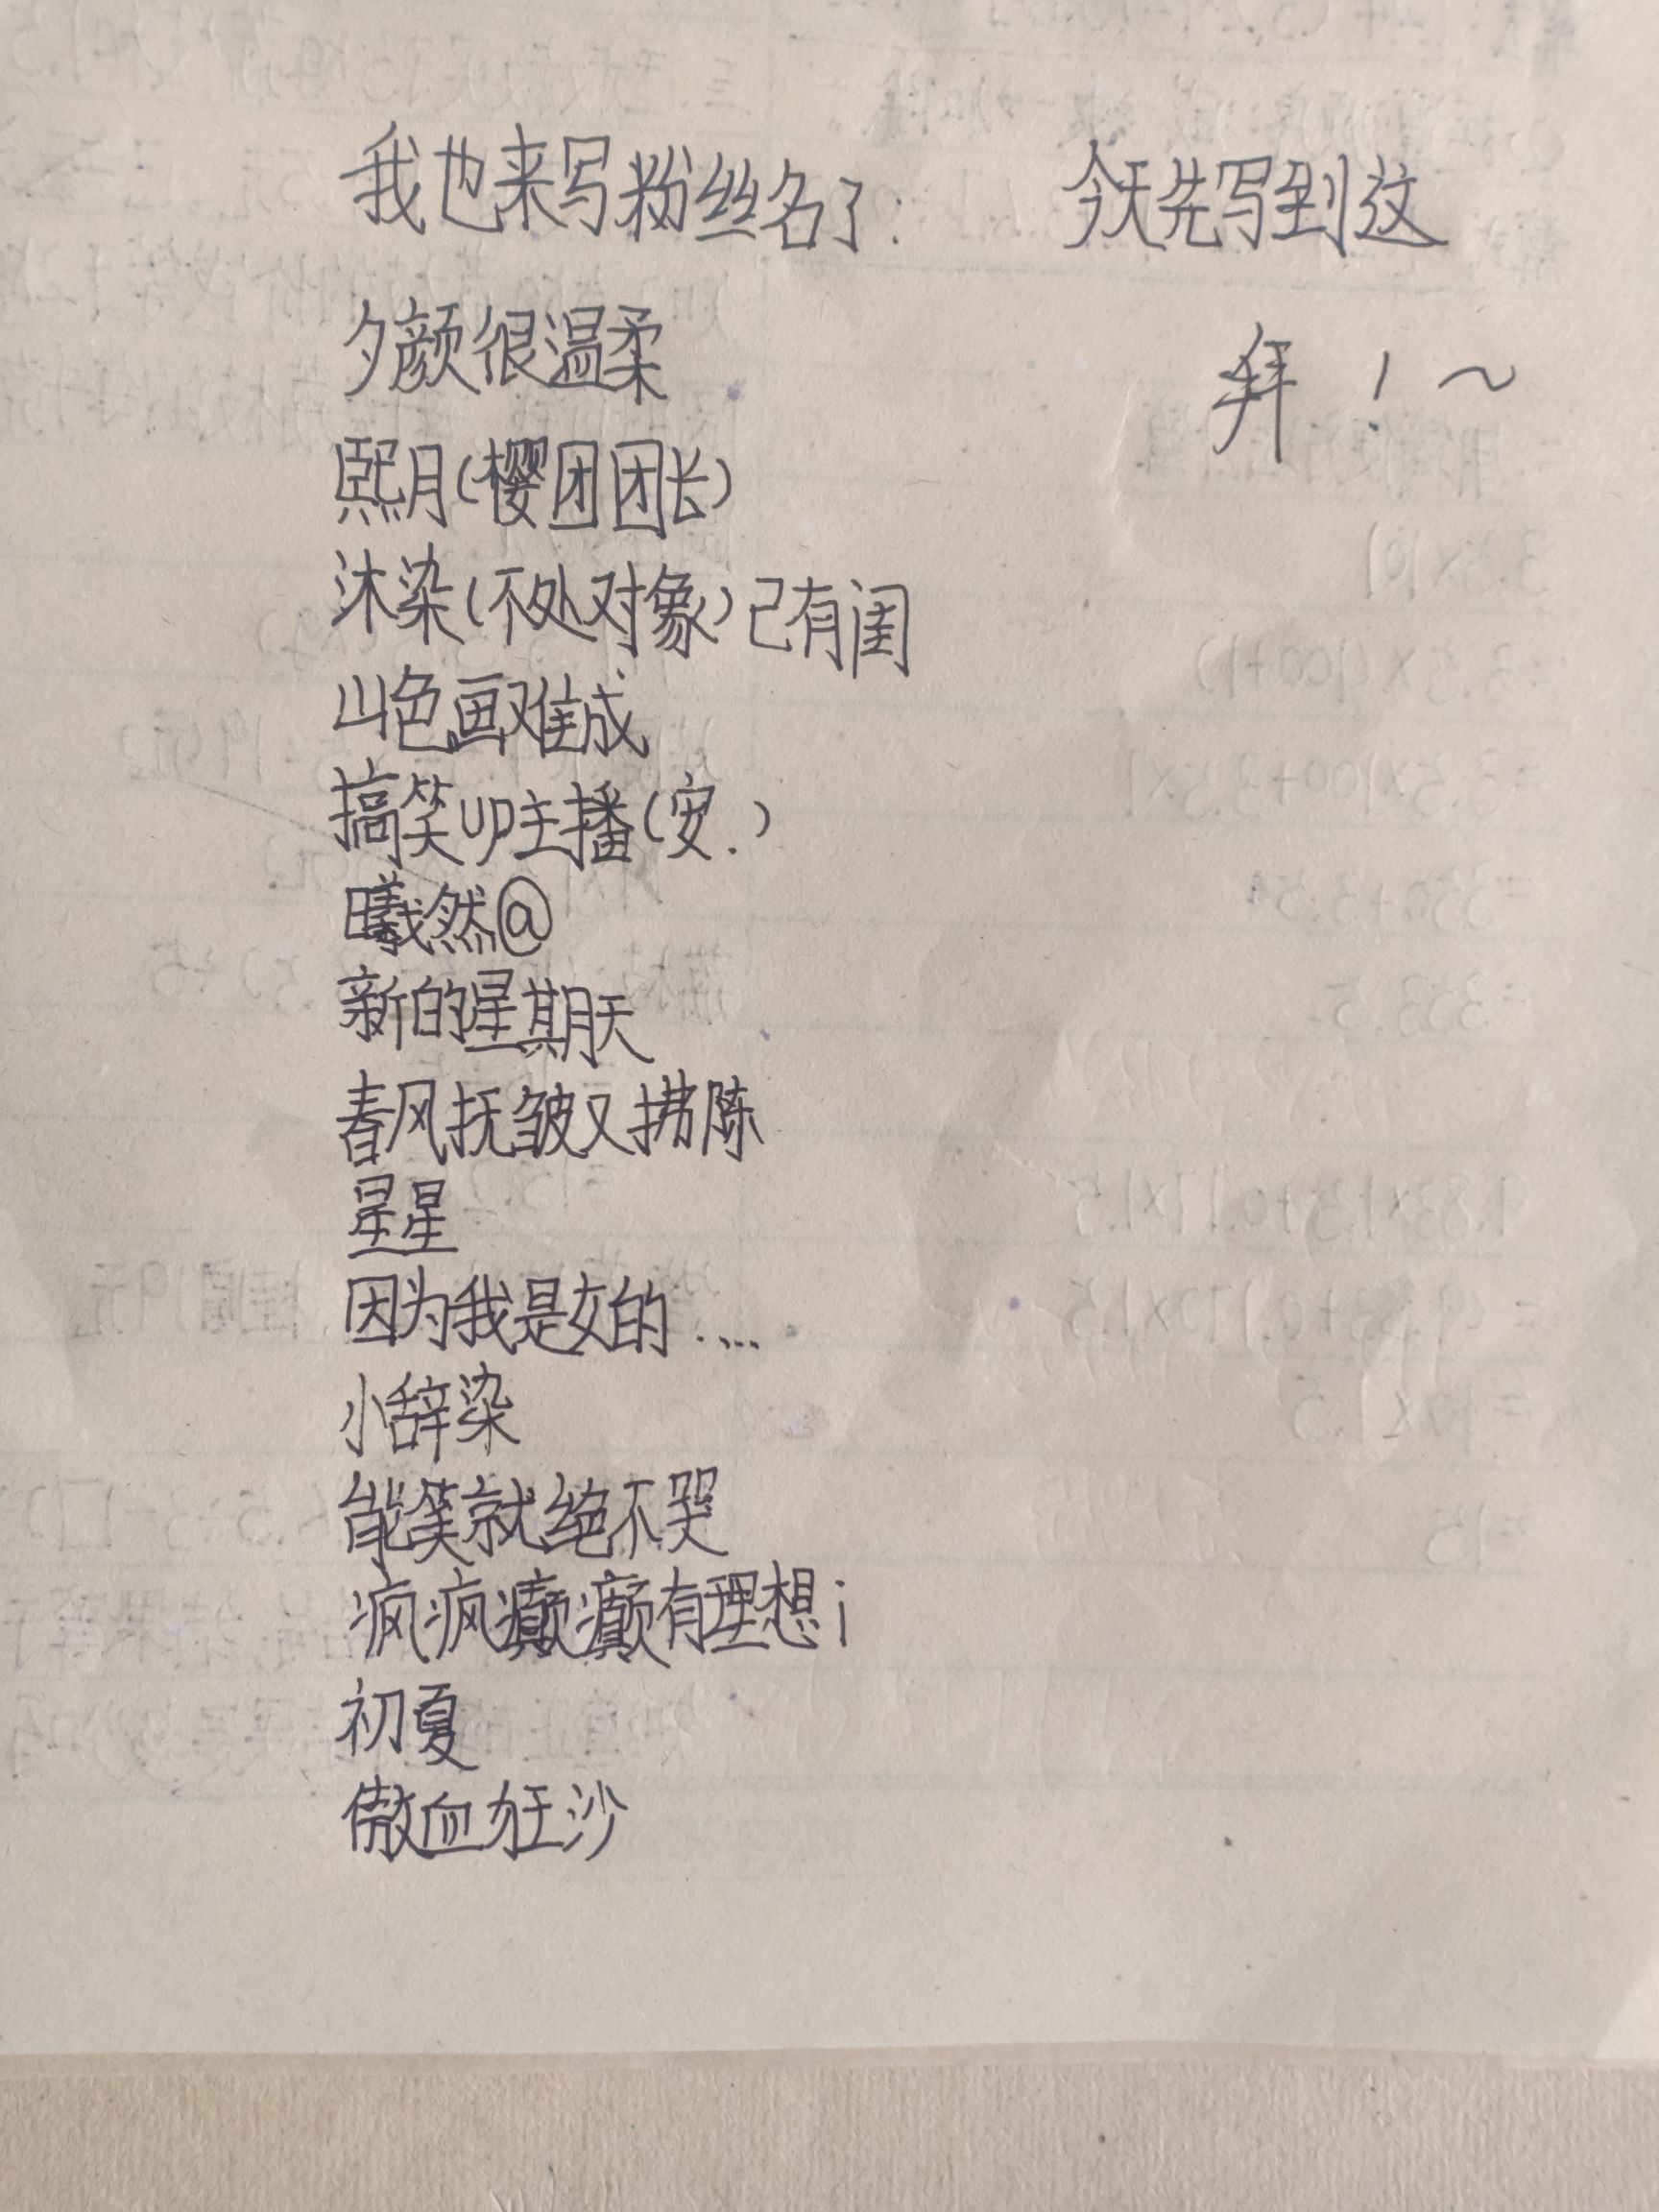 我也来写粉丝名了:
夕颜很温柔
熙月(樱团团长)
沐染(不处对象)已有闺
山色画难成
搞笑up主播(安.)
曦然@
新的星期天
春风抚皱又拂陈
星星
因为我是女的.....
小辞染
能笑就绝不哭
疯疯癫癫有理想i
初夏
傲血狂沙
今天先写到这
拜!~